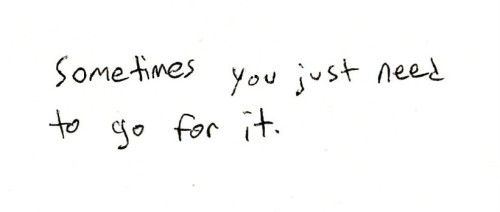 Sometimes you just need
to go for it.